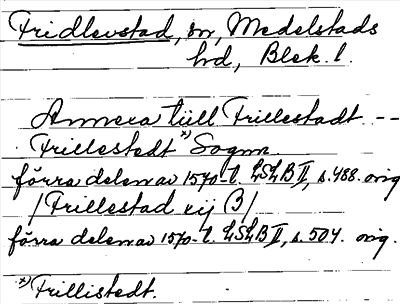 Fridlevstad, sn, Medelstads
hd, Blek. l.
Annexa tiill Frillestadt --
Frillestedt *) Sognn
förra delen av 1570-t. LSLB II, s. 488. orig
/Frillestad xij (3/
förra delen av 1570-t. LSLB II, s. 504. orig.
*) Frillistedt.